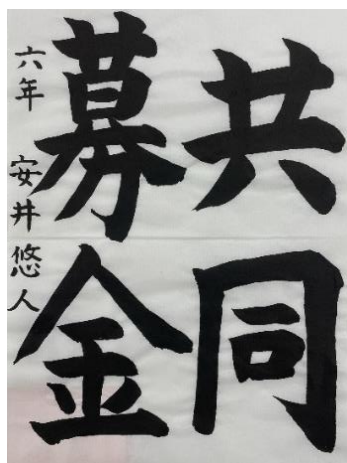 共同
募金
六年 安井悠人